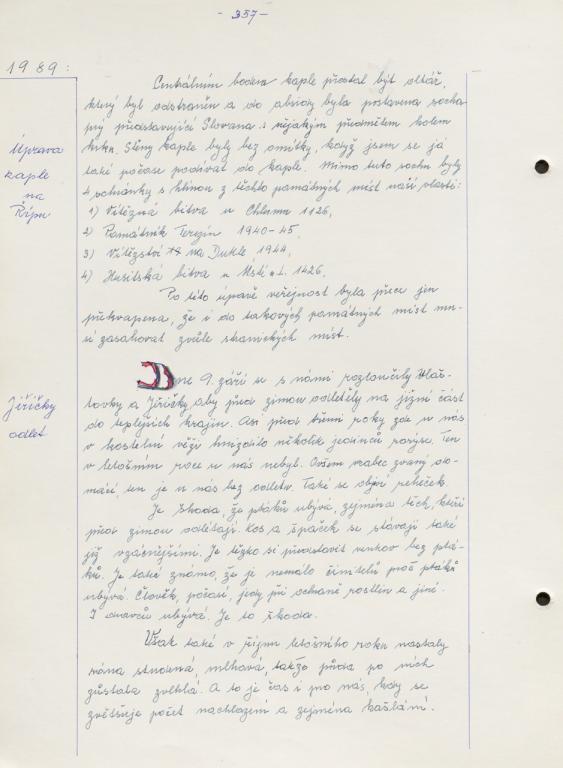 - 357 -
1989:
Centrálním bodem kaple přestal být oltář,
který byl odstraněn a do absidy byla postavena socha
prý představující Slovana s nějakým předmětem kolem
krku. Stěny kaple byly bez omítky, když jsem se já
také počase podíval do kaple. Mimo tuto sochu byly
4 schránky s hlínou z těchto památných míst naší vlasti:
1) Vítězná bitva u Chlumu 1126,
2) Památník Terezín 1940-45,
3) Vítězství na Dukle, 1944,
4) Husitská bitva u Ústí n.L. 1426.
Po této úpravě veřejnost byla přece jen
překvapena, že i do takových památných míst mu-
sí zasahovat zvůle stranických míst.
Úprava
kaple
na
Řípu
Dne 9. září se s námi rozloučily vlaš-
tovky a Jiřičky, aby před zimou odletěly na jižní část
do teplejších krajin. Asi před třemi roky zde u nás
v kostelní věži hnízdilo několik jedinců rorýse. Ten
v letošním roce u nás nebyl. Ovšem vrabec zvaný do-
mácí, ten je u nás bez odletu. Také se objeví reheček.
Je škoda, že ptáků ubývá, zejména těch, kteří
před zimou odlétají. Kos a špaček se stávají také
již vzácnějšími. Je těžko si představit venkov bez ptá-
ků. Je také známo, že je nemálo činitelů proč ptáků
ubývá. Člověk, počasí, jedy při ochraně rostlin a jiné.
I dravců ubývá. Je to škoda.
Jiřičky
odlet
Však také v říjnu letošního roku nastaly
rána studená, mlhavá, takže půda po nich
zůstala zvlhlá. A to je čas i pro nás, kdy se
zvětšuje počet nachlazení a zejména kašlání.